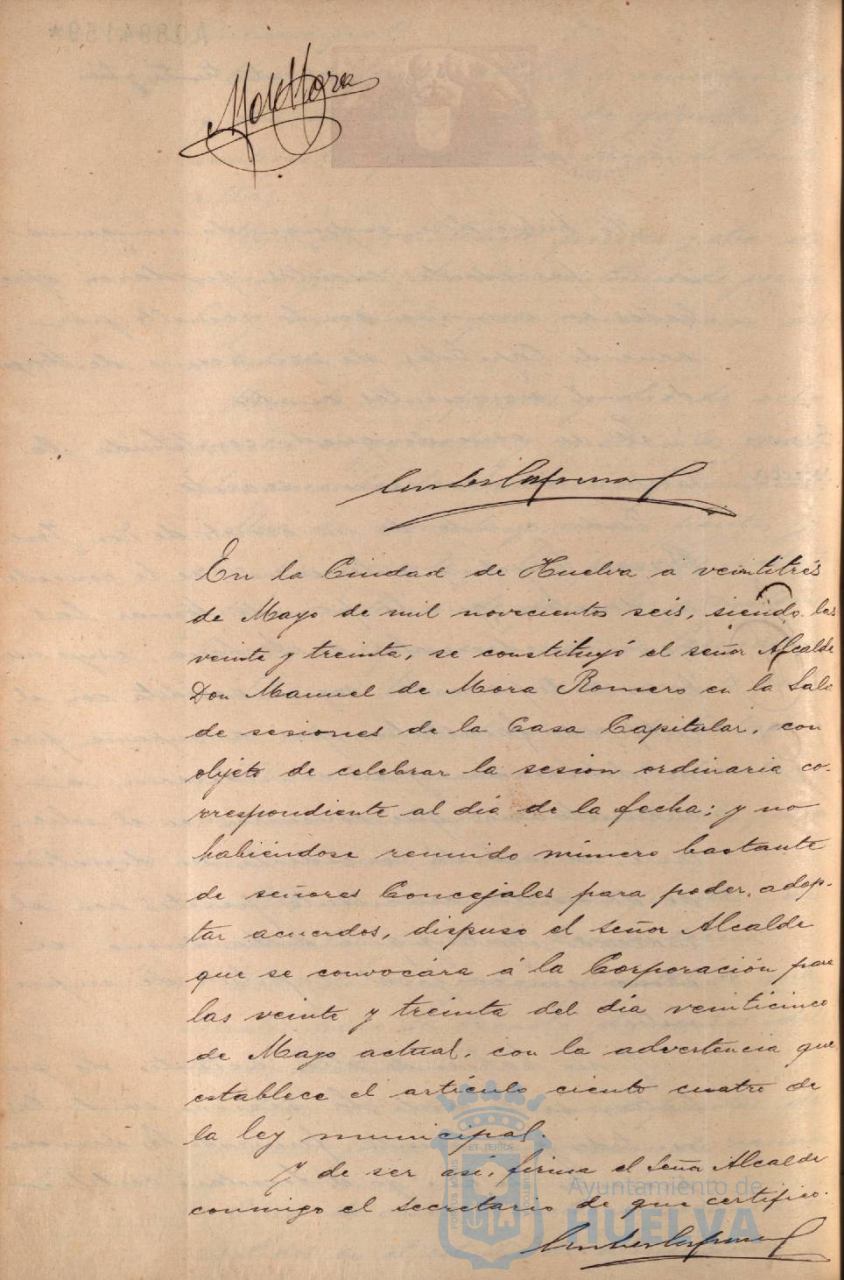 M de Mora
En la Ciudad de Huelva a veintitrés
de Mayo de mil novecientos seis, siendo las
veinte y treinta, se constituyó el señor Alcalde
Don Manuel de Mora Romero en la Sala
de sesiones de la Casa Capitular, con
objeto de celebrar la sesion ordinaria co-
rrespondiente al dia de la fecha; y no
habiéndose reunido número bastante
de señores Concejales para poder adop-
tar acuerdos, dispuso el señor Alcalde
que se convocára á la Corporación para
las veinte y treinta del dia veinticinco
de Mayo actual, con la advertencia que
establece el artículo ciento cuatro de
la ley municipal.
Y de ser así, firma el Señor Alcalde
conmigo el secretario de que certifico.
Ayuntamiento de
HUELVA